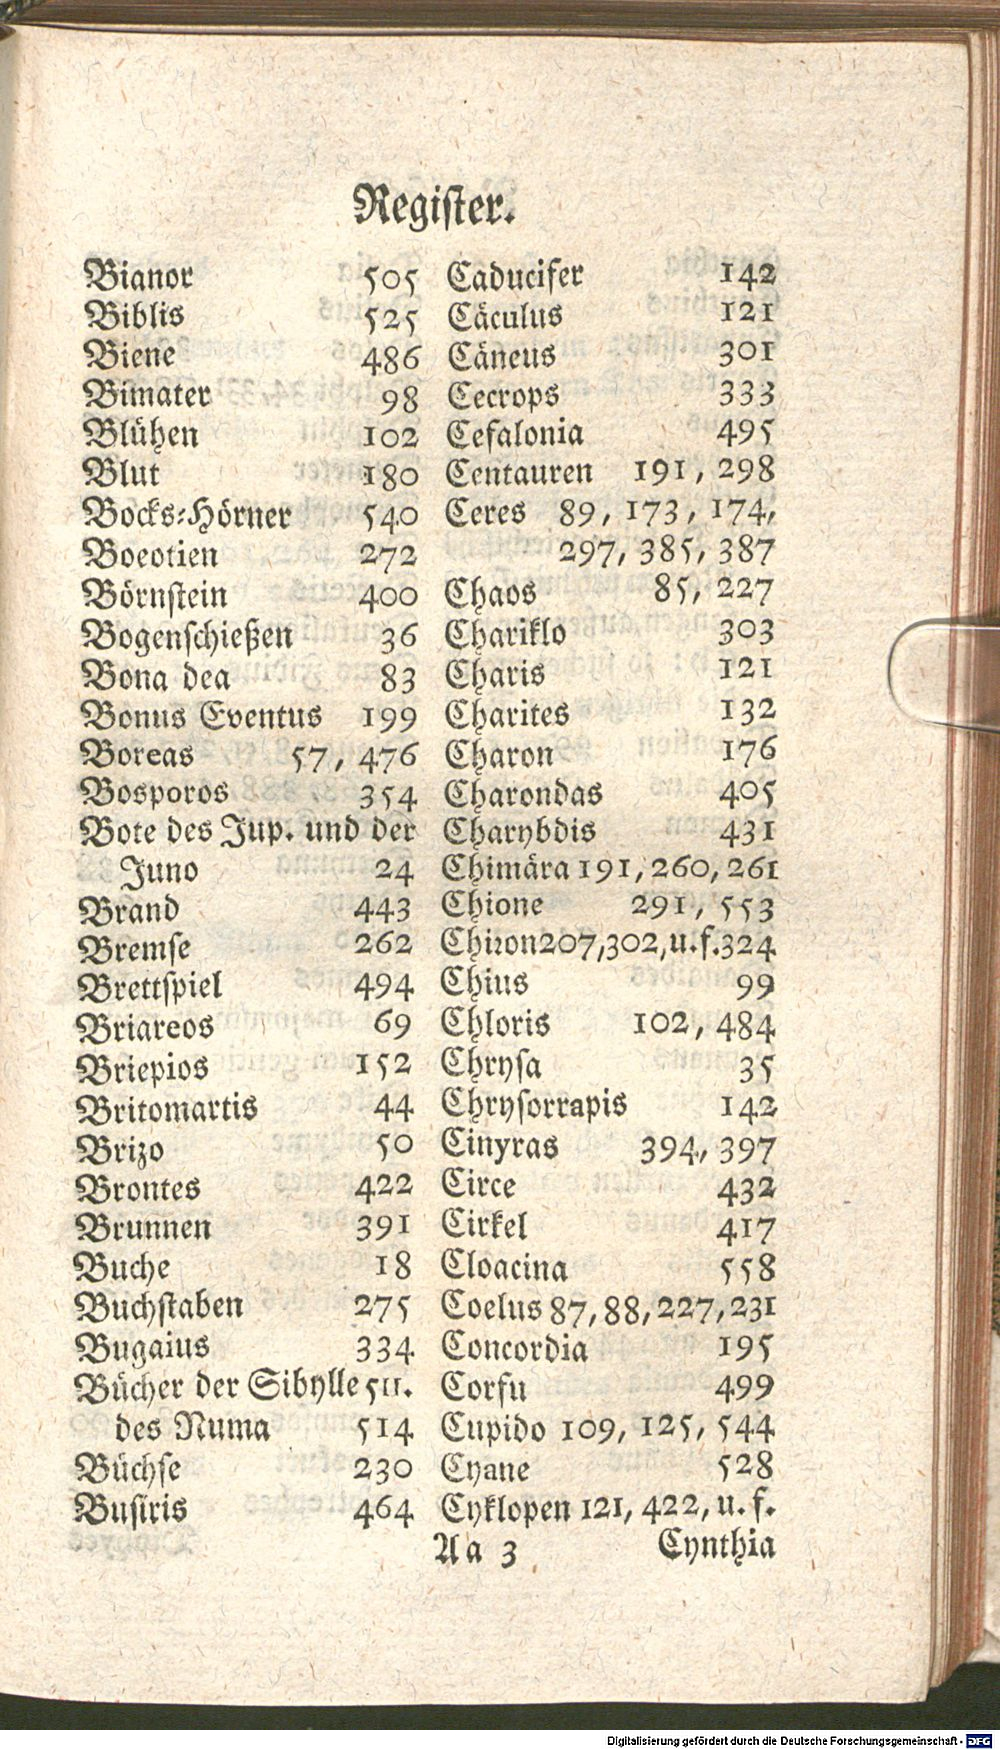 Register.
Bianor 505
Biblis 525
Biene 486
Bimater 98
Blühen 102
Blut 180
Bocks-Hörner 540
Boeotien 272
Börnstein 400
Bogenschießen 36
Bona dea 83
Bonus Eventus 199
Boreas 57, 476
Bosporos 354
Bote des Jup. und der
Juno 24
Brand 443
Bremse 262
Brettspiel 494
Briareos 69
Briepios 152
Britomartis 44
Brizo 50
Brontes 422
Brunnen 391
Buche 18
Buchstaben 275
Bugaius 334
Bücher der Sibylle 511.
des Numa 514
Büchse 230
Busiris 464
Caducifer 142
Cäculus 121
Cäneus 301
Cecrops 333
Cefalonia 495
Centauren 191, 298
Ceres 89, 173, 174,
297, 385, 387
Chaos 85, 227
Chariklo 303
Charis 121
Charites 132
Charon 176
Charondas 405
Charybdis 431
Chimära 191, 260, 261
Chione 291, 553
Chiron 207, 302, u. f. 324
Chius 99
Chloris 102, 484
Chrysa 35
Chrysorrapis 142
Cinyras 394, 397
Circe 432
Cirkel 417
Cloacina 558
Coelus 87, 88, 227, 231
Concordia 195
Corfu 499
Cupido 109, 125, 544
Cyane 528
Cyklopen 121, 422, u. f.
Aa 3 Cynthia
Digitalisierung gefördert durch die Deutsche Forschungsgemeinschaft - DFG